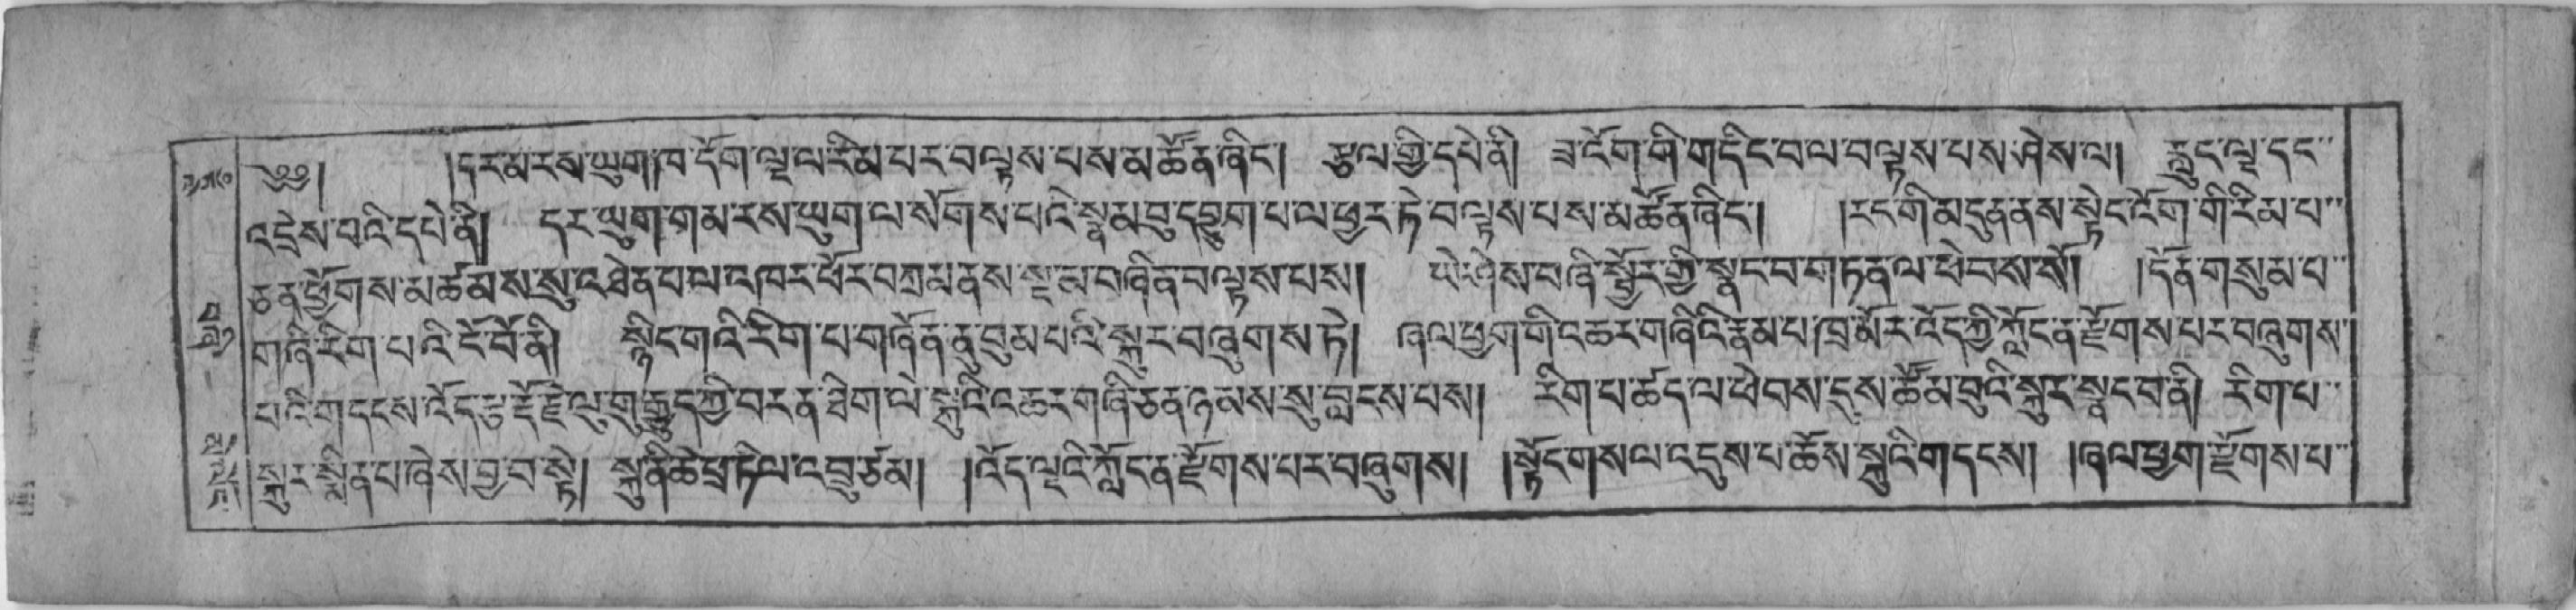 ༄༅། །དར་མ་རས་ཡུག་ཁ་དོག་ལྔ་ལ་རིམ་པར་བལྟས་པས་མཚོན་ཞིང༌། རྩལ་གྱི་དཔེ་ནི། ཟ་འོག་གི་གདིང་བལ་བལྟས་པས་ཤེས་ལ། རླུང་ལྔ་དང་
འདྲེས་པའི་དཔེ་ནི། དར་ཡུག་གམ་རས་ཡུག་ལ་སོགས་པའི་སྣམ་བུ་དབྱུག་པ་ལ་ཕྱར་ཏེ་བལྟས་པས་མཚོན་ཞིང༌། །རང་གི་མདུན་ནས་སྟེང་འོག་གི་རིམ་པ་
ཅན་ཕྱོགས་མཚམས་སུ་འཐེན་པ་ལ་འཁར་ཕོར་བཀྲམ་ནས་སྔ་མ་བཞིན་བལྟས་པས། ཡེ་ཤེས་བཞི་སྦྱོར་གྱི་སྣང་བ་གཏན་ལ་ཕེབས་སོ། །དོན་གསུམ་པ་
གཞི་རིག་པའི་ངོ་བོ་ནི། སྙིང་གའི་རིག་པ་གཞོན་ནུ་བུམ་པའི་སྐུར་བཞུགས་ཏེ། ཞལ་ཕྱག་གི་འཆར་གཞིའི་རྣམ་པ་ཁྲ་མོར་འོད་ཀྱི་ཀློང་ན་རྫོགས་པར་བཞུགས་
པའི་གདངས་འོད་རྩ་རྡོ་རྗེ་ལུ་གུ་རྒྱུད་ཀྱི་བར་ན་ཐིག་ལེ་སྐུའི་འཆར་གཞི་ཅན་ཉམས་སུ་བླངས་པས། རིག་པ་ཚད་ལ་ཕེབས་དུས་ཚོམ་བུའི་སྐུར་སྣང་བ་ནི། རིག་པ་
སྐུར་སྨིན་པ་ཞེས་བྱ་བ་སྟེ། སྐུ་ནི་ཆེ་ཕྲ་ཏིལ་འབྲུ་ཙམ། །འོད་ལྔའི་ཀློང་ན་རྫོགས་པར་བཞུགས། །སྟོང་གསལ་འདུས་པ་ཆོས་སྐུའི་གདངས། །ཞལ་ཕྱག་རྫོགས་པ་